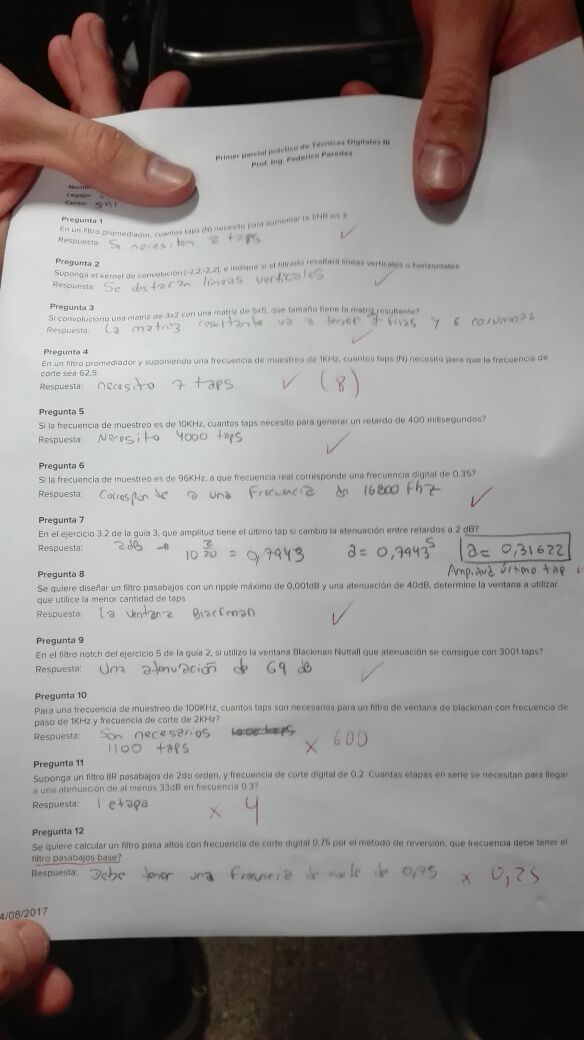 Primer parcial práctico de Técnicas Digitales III
Prof. Ing. Federico Paredes
Nombr
Legajo: 6
Curso: 5R1
Pregunta 1
En un filtro promediador, cuantos taps (N) necesito para aumentar la SNR en 3
Respuesta: Se necesitan 2 taps
Pregunta 2
Suponga el kernel de convolución [-2,2;-2,2], e indique si el filtrado resaltará líneas verticales u horizontales
Respuesta: Se destacan líneas verticales
Pregunta 3
Si convoluciono una matriz de 3x2 con una matriz de 5x5, que tamaño tiene la matriz resultante?
Respuesta: La matriz resultante va a tener 7 filas y 6 columnas
Pregunta 4
En un filtro promediador y suponiendo una frecuencia de muestreo de 1KHz, cuantos taps (N) necesito para que la frecuencia de
corte sea 62,5
Respuesta: necesito 7 taps (8)
Pregunta 5
Si la frecuencia de muestreo es de 10KHz, cuantos taps necesito para generar un retardo de 400 milisegundos?
Respuesta: Necesito 4000 taps
Pregunta 6
Si la frecuencia de muestreo es de 96KHz, a que frecuencia real corresponde una frecuencia digital de 0,35?
Respuesta: Corresponde a una Frecuencia de 16800
Pregunta 7
En el ejercicio 3.2 de la guía 3, que amplitud tiene el último tap si cambio la atenuación entre retardos a 2 dB?
Respuesta: 2dB → 10^(2/20) = 0,7943 a = 0,7943^5 a = 0,31622
Amplitud Último tap
Pregunta 8
Se quiere diseñar un filtro pasabajos con un ripple máximo de 0,001dB y una atenuación de 40dB, determine la ventana a utilizar
que utilice la menor cantidad de taps
Respuesta: La ventana Blackman
Pregunta 9
En el filtro notch del ejercicio 5 de la guía 2, si utilizo la ventana Blackman Nuttall que atenuación se consigue con 3001 taps?
Respuesta: Una atenuación de 69 dB
Pregunta 10
Para una frecuencia de muestreo de 100KHz, cuantos taps son necesarios para un filtro de ventana de blackman con frecuencia de
paso de 1KHz y frecuencia de corte de 2KHz?
Respuesta: Son necesarios
1100 taps x 600
Pregunta 11
Suponga un filtro IIR pasabajos de 2do orden, y frecuencia de corte digital de 0.2. Cuantas etapas en serie se necesitan para llegar
a una atenuación de al menos 33dB en frecuencia 0.3?
Respuesta: 1 etapa x 4
Pregunta 12
Se quiere calcular un filtro pasa altos con frecuencia de corte digital 0.75 por el método de reversión, que frecuencia debe tener el
filtro pasabajos base?
Respuesta: Debe tener una Frecuencia de corte de 0,75 x 0,25
4/08/2017